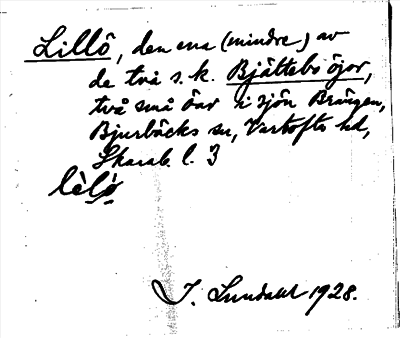 Lillö, den ena (mindre) av
de två s.k. Bjättebo öjor,
två små öar i sjön Brängen,
Bjurbäcks sn, Vartofta hd,
Skarab. l. 3
lèlö
I. Lundahl 1928.